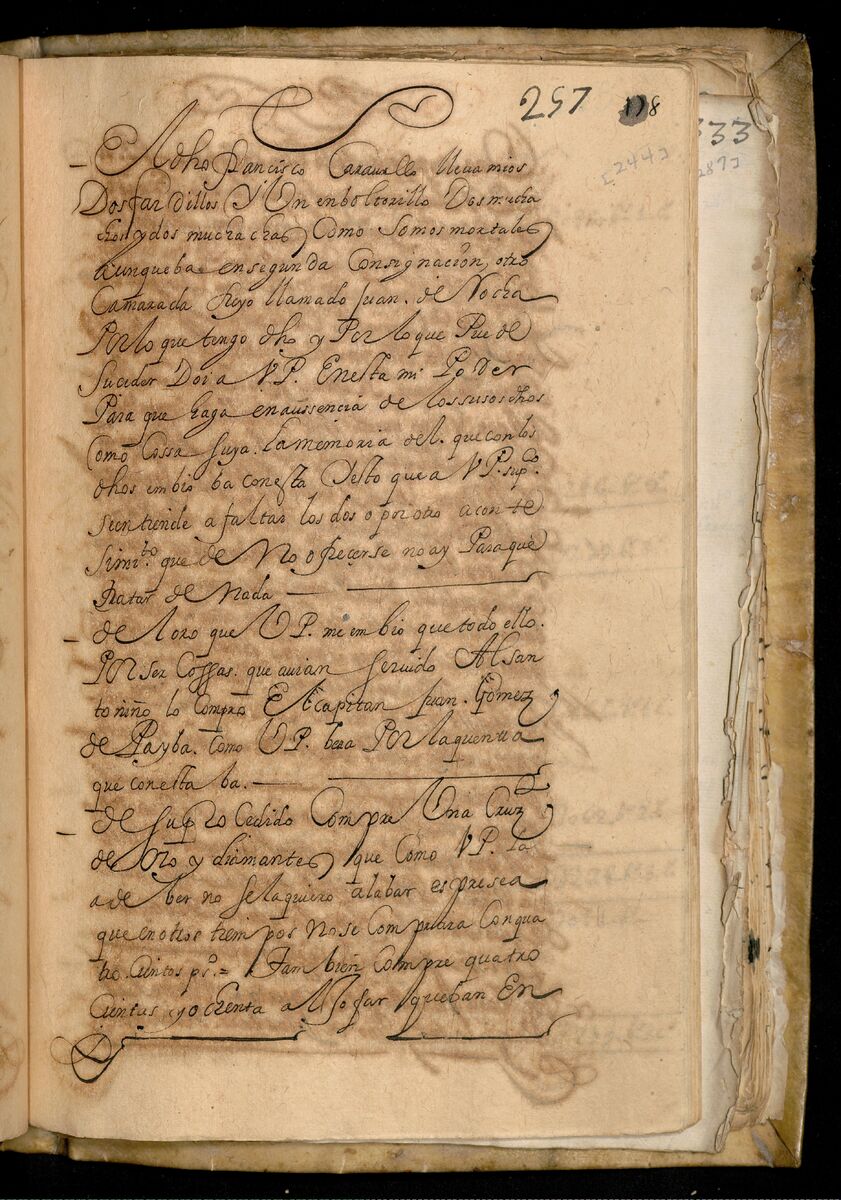 257 178
333
[244]
287]
El dho francisco Carauello lleva mios
Dos fardillos y Un enboltorillo Dos mucha
chos y dos muchachas Como Somos mortales
aunque ba en segunda Consignacion, otro
Camarada suyo llamado Juan. de Rocha
Por lo que tengo dho y Por lo que Puede
Suceder Doi a VP. En esta mi Poder
Para que haga en aussencia de los susos dhos
Como Cossa suya. la memoria del. que con los
dhos embio ba con esta Y esto que a VP. supco.
se entiende a faltar los dos o pr otro aconte
Simito. que de No ofrecerse no ay Para que
tratar de Nada
de l oro que VP. me embio que todo ello.
Por ser Cossas. que auian servido Al san
to niño lo Compro El Capitan Juan. Gomez
de Payba. Como VP. bera Por la quenta
que con esta ba.
de su Procedido Compre Una Cruz
de oro y diamantes que Como VP. la
a de ber no se la quiero alabar es presea
que en otros tiempos No se Comprara Con qua
tro. Cientos ps. = Tambien Compre quatro
Cientas y ochenta aljofar que ban En